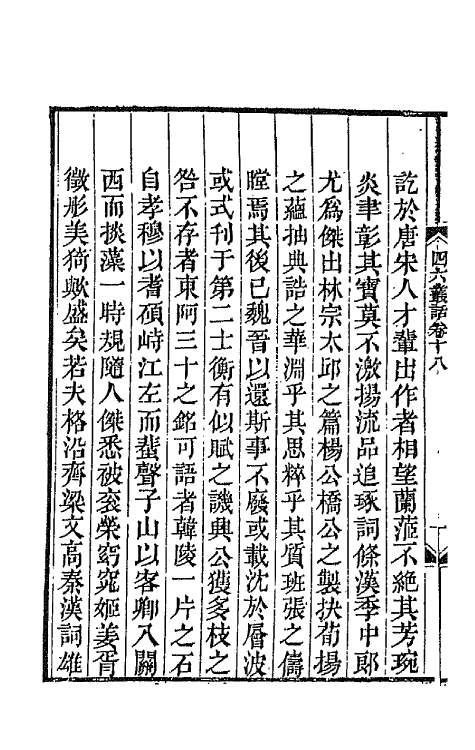 四六叢話卷十八
訖於唐宋人才輩出作者相望蘭茝不絕其芳琬
炎聿彰其寶莫不激揚流品追琢詞條漢季中郎
尤爲傑出林宗太邱之篇楊公橋公之製抉荀揚
之蘊抽典誥之華淵乎其思粹乎其質班張之儔
瞠焉其後已魏晉以還斯事不廢或載沈於層波
或式刊于第二士衡有似賦之譏興公獲多枝之
咎不存者東阿三十之銘可語者韓陵一片之石
自孝穆以耆碩峙江左而蜚聲子山以客卿入關
西而掞藻一時規隨人傑悉被衮榮窈窕姬姜胥
徵彤美猗歟盛矣若夫格沿齊梁文高秦漢詞雄